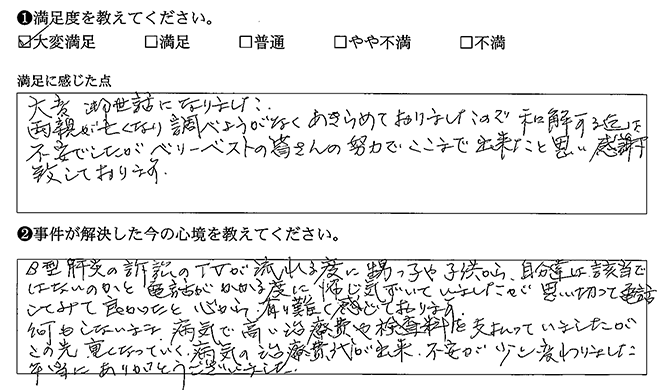 ❶満足度を教えてください。
☑大変満足 □満足 □普通 □やや不満 □不満
満足に感じた点
大変お世話になりました.
両親が亡くなり調べようがなくあきらめておりましたので和解する迄は
不安でしたがベリーベストの皆さんの努力でここまで出来たこと思い感謝
致しております.
❷事件が解決した今の心境を教えてください。
B型肝炎の訴訟のTVが流れる度に甥っ子や子供から、自分達は該当で
はないのかと電話がかかる度に怖じ気ずいていましたが思い切って電話
してみて良かったと心から有り難く感じております.
何もしないまま病気で高い治療費や検査料を支払っていましたが
この先重くなっていく病気の治療費代が出来、不安が少し変わりました
本当にありがとうございました.